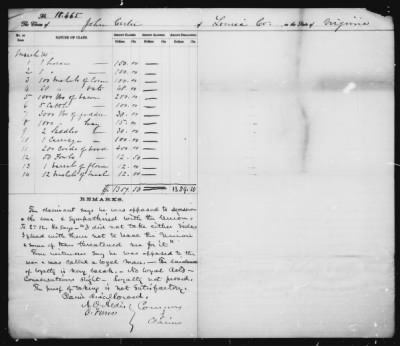 No. 18.665
The Claim of John of Louisa Co. in the State of Virginia
No. of Item NATURE OF CLAIM. AMOUNT CLAIMED AMOUNT ALLOWED AMOUNT DISALLOWED
Dollars Cts. Dollars Cts. Dollars Cts.
1 1 horse 150.00
2 1 " 100.00
3 100 bushels of corn 100.00
4 20 " oats
5 1000 lbs of bacon
6 5 Cattle 100.00
7 3000 lbs of fodder 30.00
8 1000 " hay 15.00
9 2 Saddles 30.00
10 1 Carriage 100.00
11 200 Cords of wood 400.00
12 50 Fowls 12.50
13 1 barrel of flour 12.00
14 12 bushels of meal 12.
REMARKS.
The claimant says he was opposed to secession
& the war & sympathized with the Union.
To 27 he says "I did not take either sides
I plead with them not to leave the Union
& some of them threatened me for it"
witnesses say he was opposed to the
war & was called a loyal man. The evidence
of loyalty is very weak. No loyal acts
Loyalty not proved.
The proof of taking is not satisfactory.
Claim disallowed.
A. O. Aldis
O. Ferriss
Commrs
of
Claims